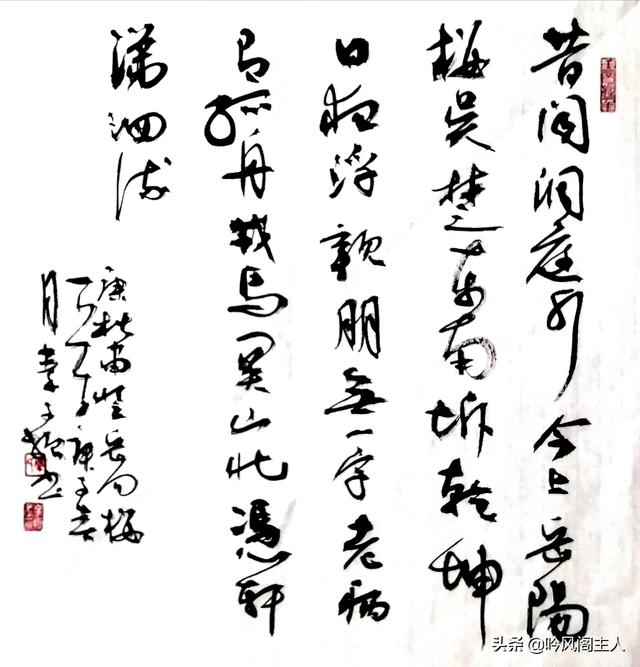 昔闻洞庭水今上岳陽
楼吴楚东南坼乾坤
日夜浮親朋無一字老病
有孤舟戎馬関山北憑軒
涕泗流
唐杜甫登岳阳楼
庚子春
月李子书
头条 @吟风阁主人